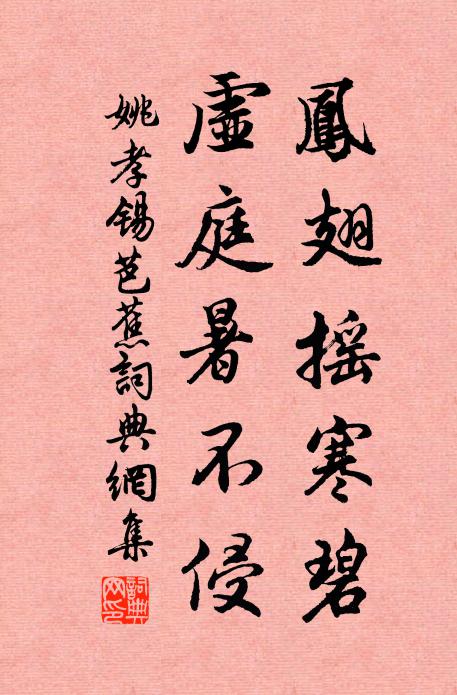 鳳翅搖寒碧
虛庭暑不侵
姚孝錫芭蕉詞典網集
詞典網印